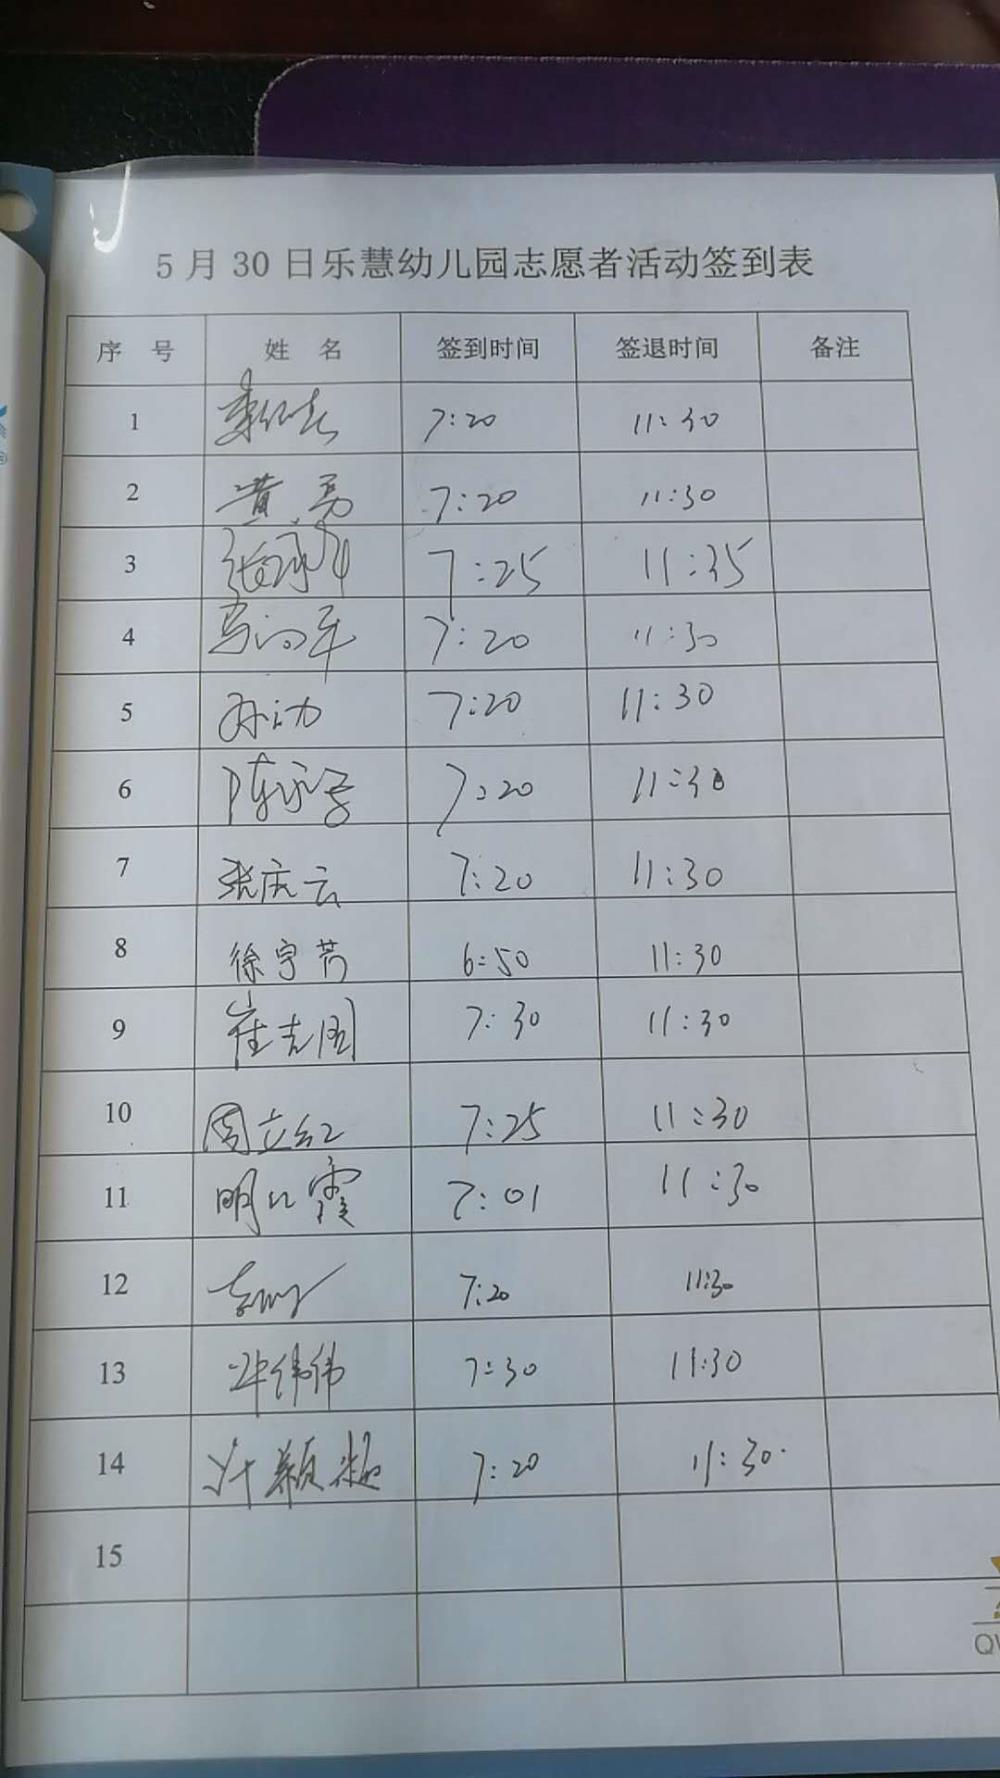 5月30日乐慧幼儿园志愿者活动签到表
序 号 姓 名 签到时间 签退时间 备注
1 7:20 11:30
2 黄勇 7:20 11:30
3 7:25 11:35
4 7:20 11:30
5 孙立功 7:20 11:30
6 7:20 11:30
7 张庆云 7:20 11:30
8 徐宇芳 6:50 11:30
9 崔志国 7:30 11:30
10 周立红 7:25 11:30
11 明江霞 7:01 11:30
12 7:20 11:30
13 伟伟 7:30 11:30
14 叶颖超 7:20 11:30
15